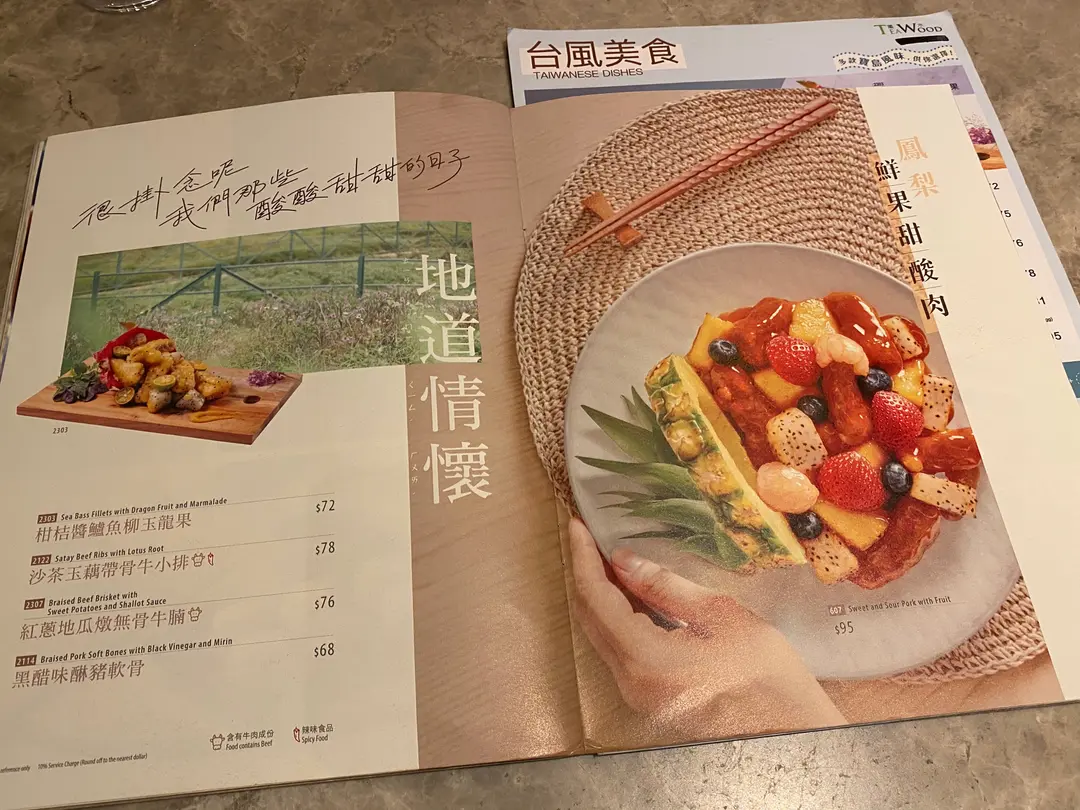 很掛念呢
我們那些
酸酸甜甜的日子
地道情懷
2303
2303 Sea Bass Fillets with Dragon Fruit and Marmalade
柑桔醬鱸魚柳玉龍果
$72
2122 Satay Beef Ribs with Lotus Root
沙茶玉藕帶骨牛小排
$78
2307 Braised Beef Brisket with
Sweet Potatoes and Shallot Sauce
紅蔥地瓜燉無骨牛腩
$76
2114 Braised Pork Soft Bones with Black Vinegar and Mirin
黑醋味醂豬軟骨
$68
含有牛肉成份
Food contains Beef
辣味食品
Spicy Food
reference only 10% Service Charge (Round off to the nearest dollar)
鳳梨
鮮果甜酸肉
607 Sweet and Sour Pork with Fruit
$95
台風美食
TAIWANESE DISHES
TEAWOOD
多款寶島風味